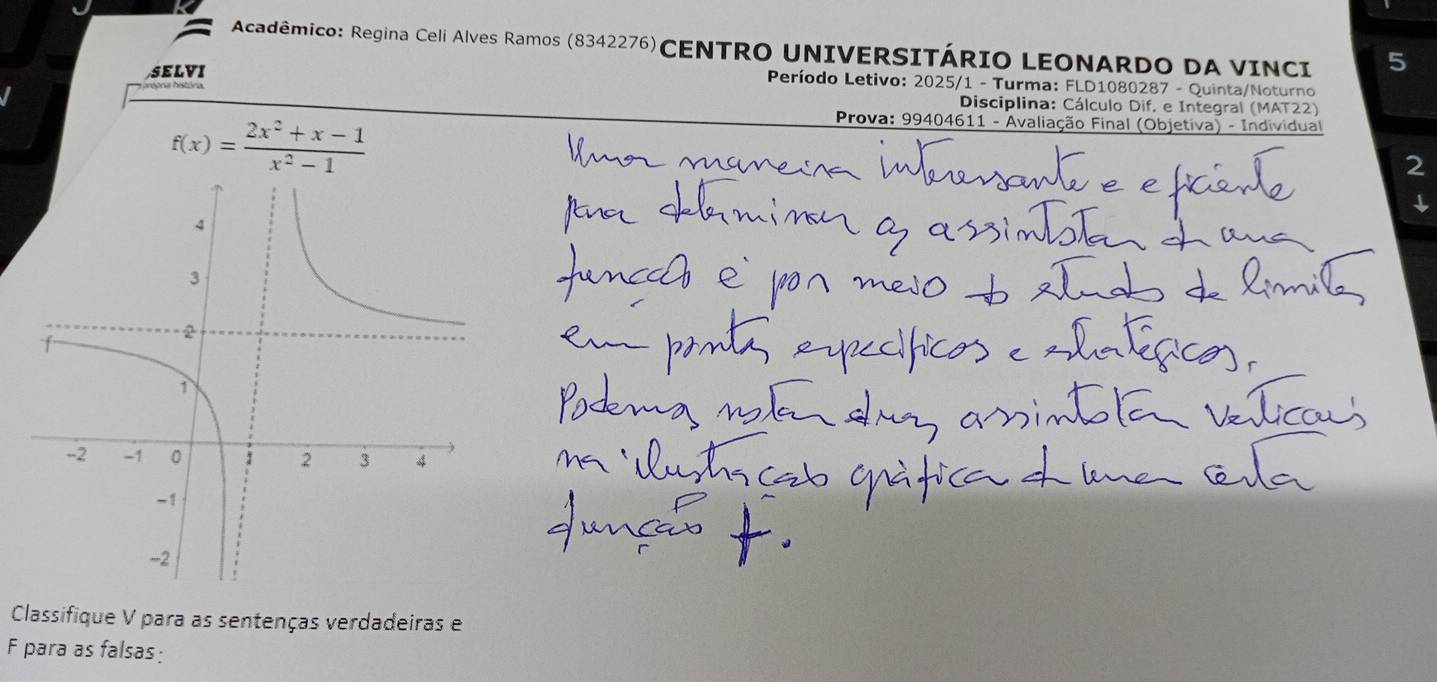 Acadêmico: Regina Celi Alves Ramos (8342276)
CENTRO UNIVERSITÁRIO LEONARDO DA VINCI
SELVI
própria história.
Período Letivo: 2025/1 - Turma: FLD1080287 - Quinta/Noturno
Disciplina: Cálculo Dif. e Integral (MAT22)
Prova: 99404611 - Avaliação Final (Objetiva) - Individual
f(x) = (2x² + x − 1)/(x² − 1)
4
3
2
f
1
-2 -1 0 1 2 3 4
-1
-2
Uma maneira interessante e eficiente
para determinar as assíntotas de uma
função é por meio do estudo de limites
em pontos específicos e estratégicos.
Podemos notar duas assíntotas verticais
na ilustração gráfica de uma certa
função f.
Classifique V para as sentenças verdadeiras e
F para as falsas:
5
2
↓